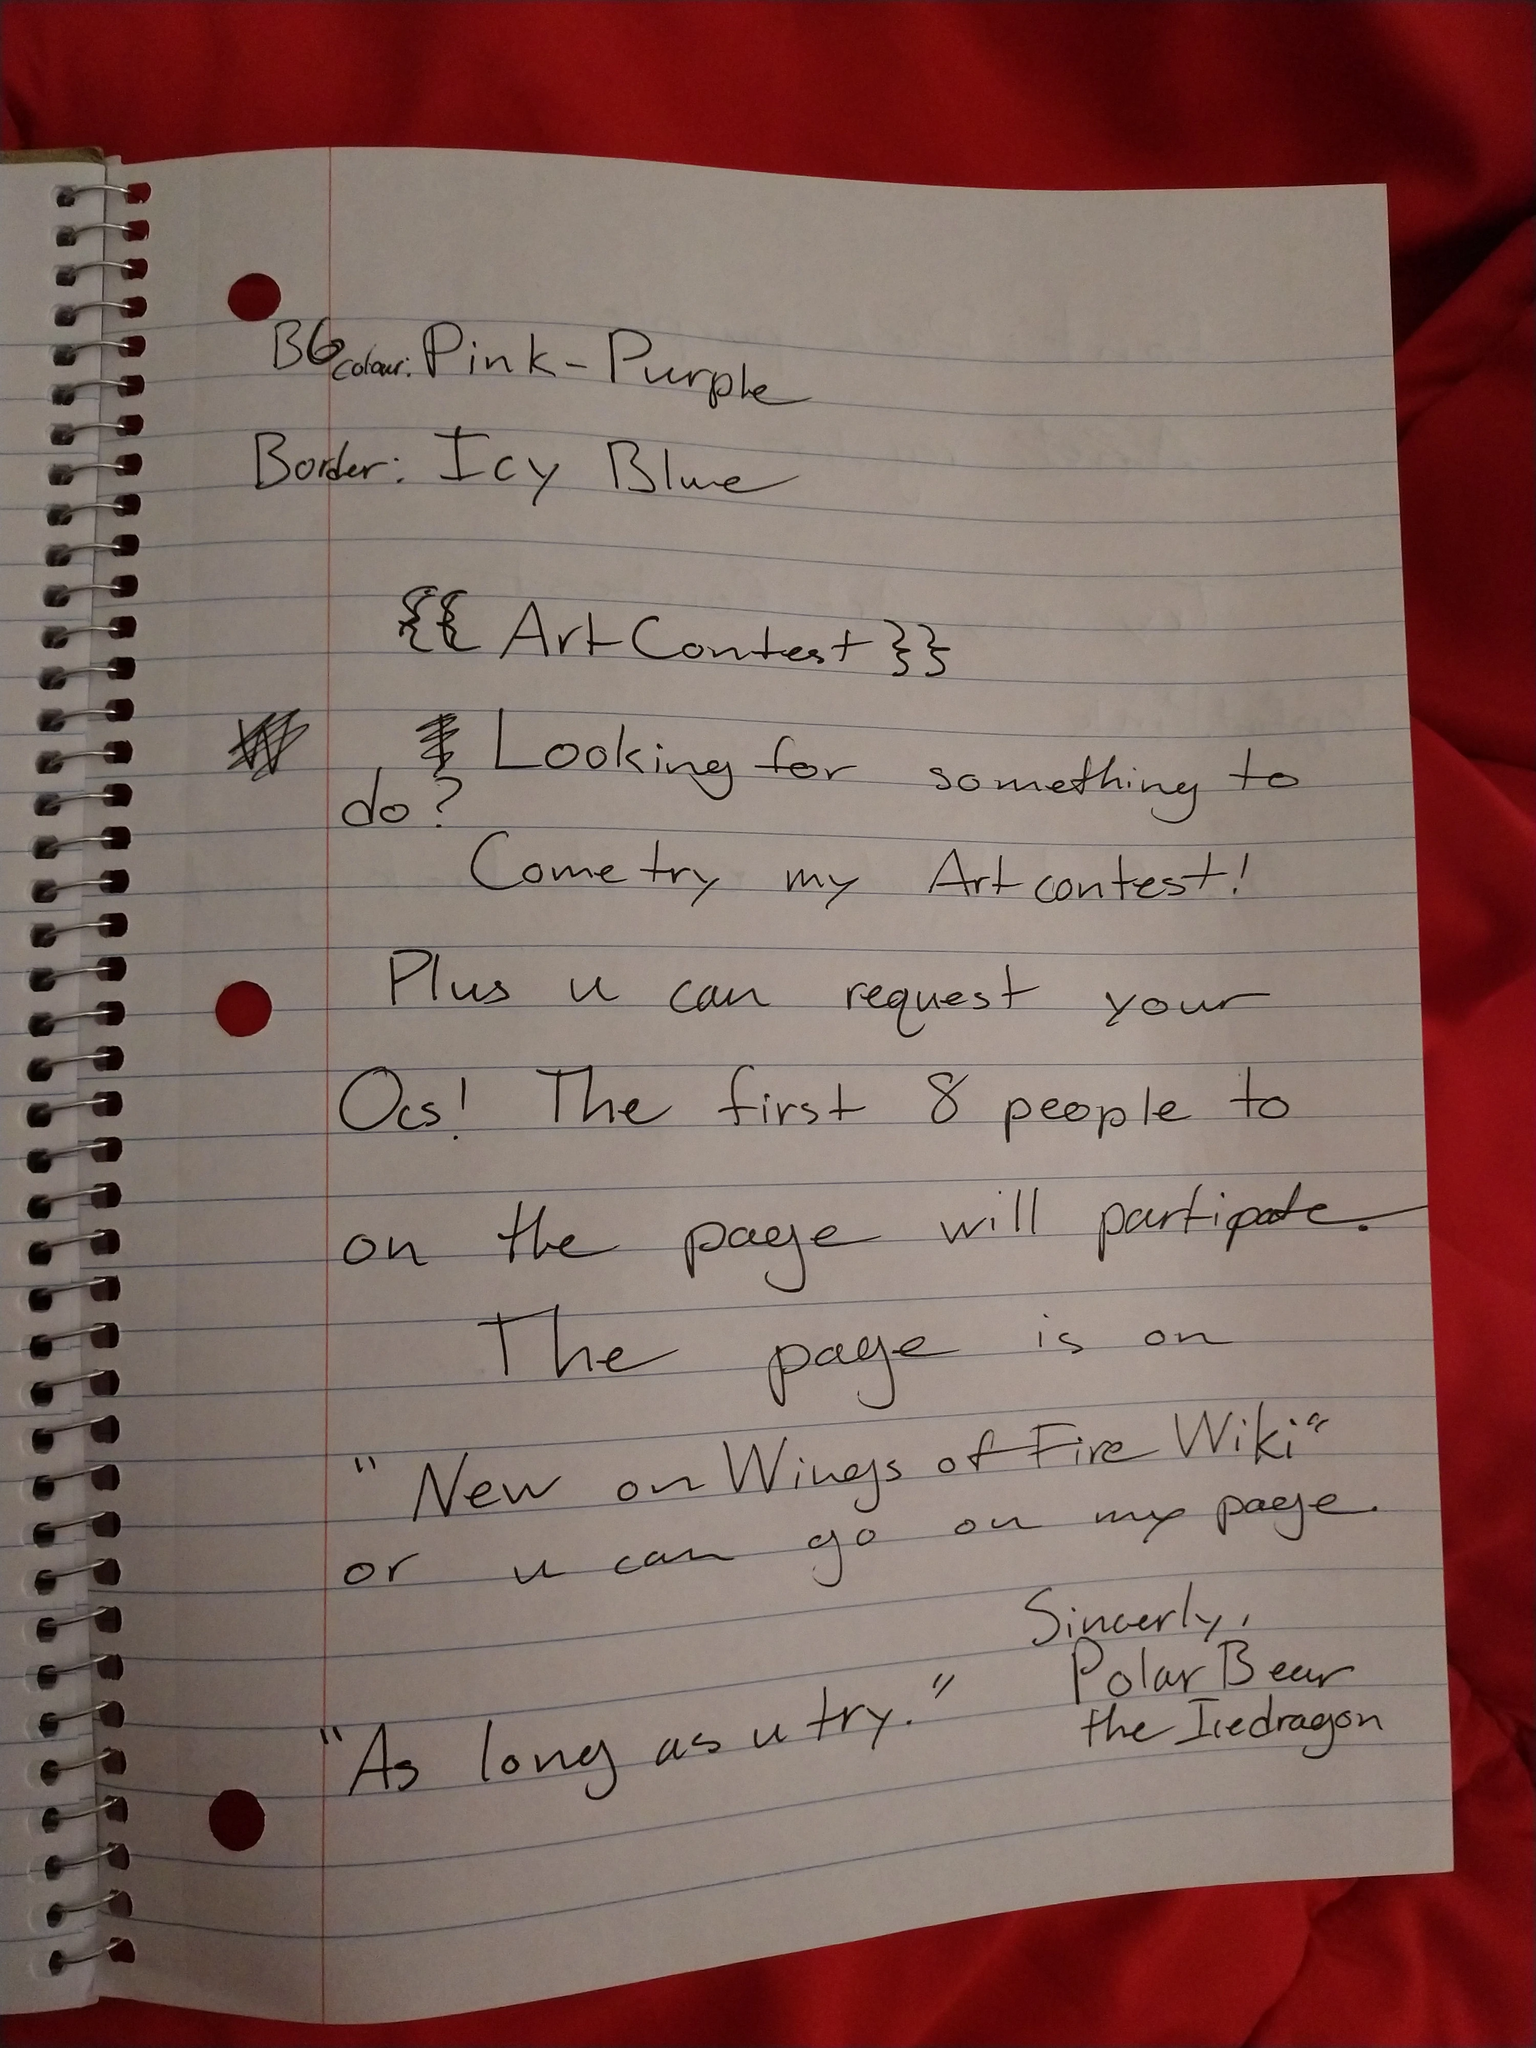 BG colour: Pink-Purple
Border: Icy Blue
{{Art Contest}}
Looking for something to
do?
Come try my Art contest!
Plus u can request your
Ocs! The first 8 people to
on the page will partipate.
The page is on
"New on Wings of Fire Wiki"
or u can go on my page.
Sincerly,
Polar Bear
the Icedragon
"As long as u try."